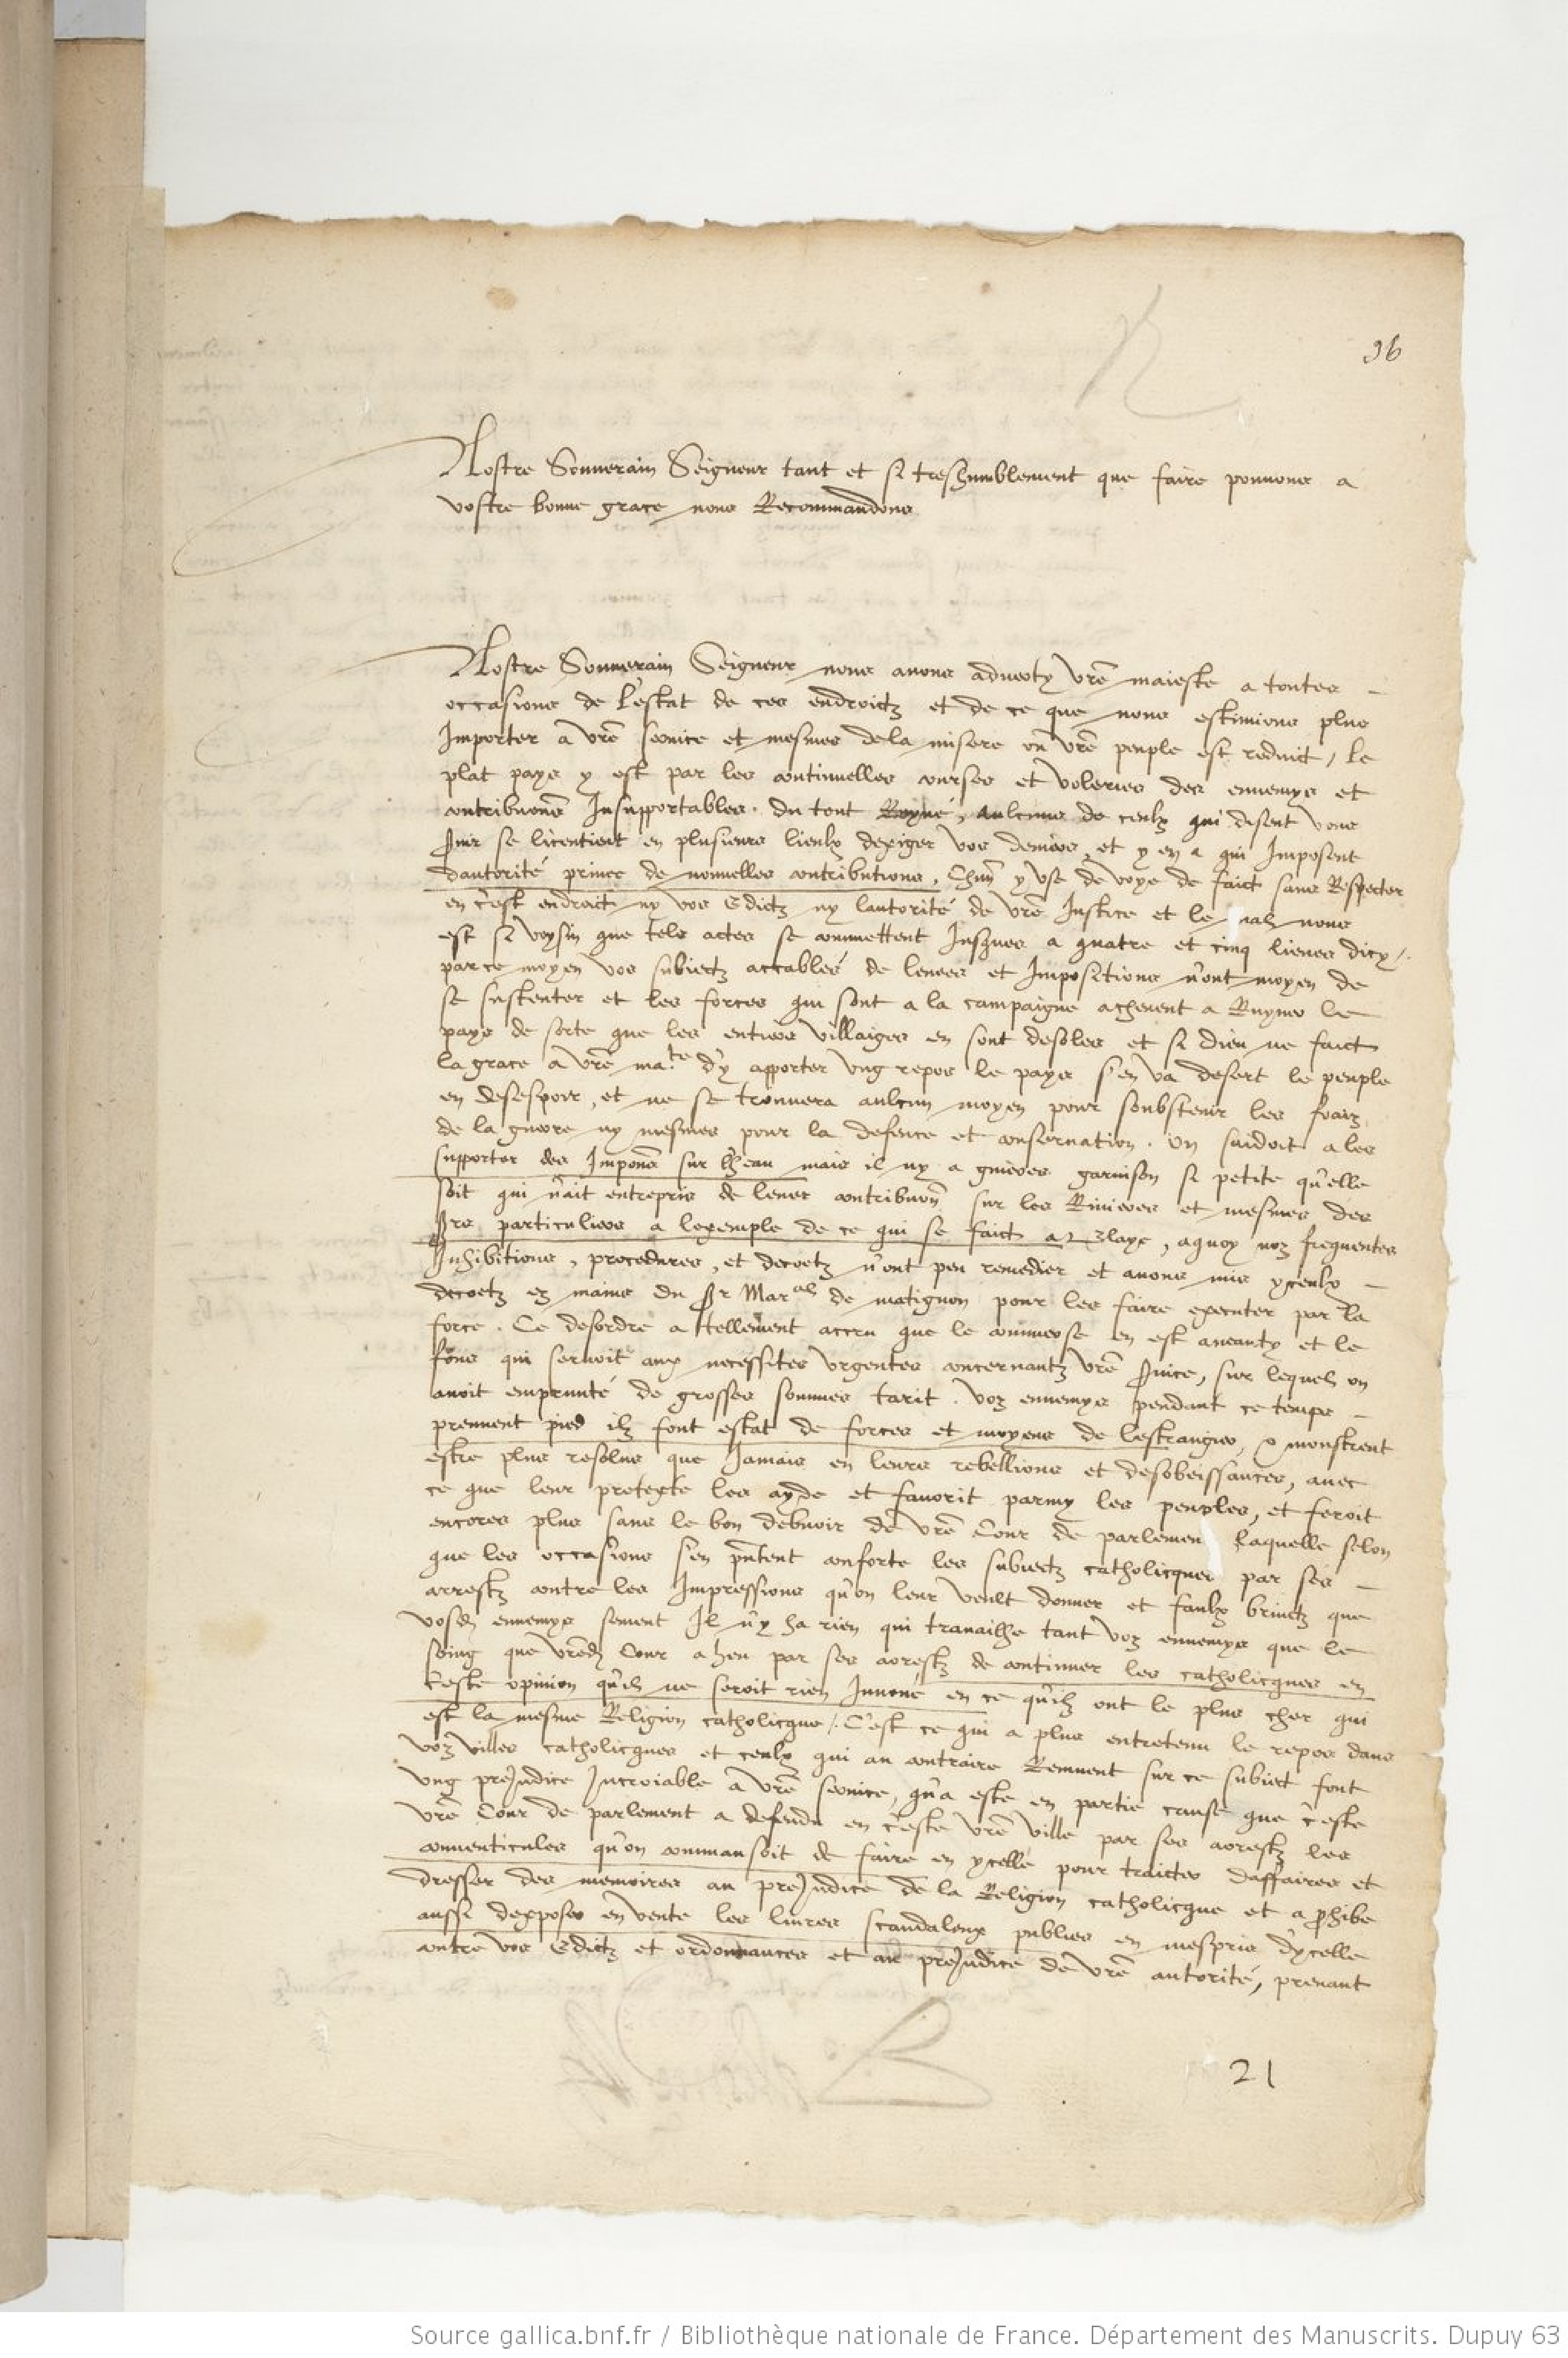 96
Nostre Souverain Seigneur tant et si treshumblement que faire pouvons a
vostre bonne grace nous Recommandons
Nostre Souverain Seigneur nous avons adverty vre maieste a toutes
occasions de l'estat de ces endroictz et de ce que nous estimions plus
Importer a vre service et mesmes de la misere ou vre peuple est reduict, le
plat pays y est par les continuelles courses et voleries des ennemys et
contribuons Insupportables du tout Ruyné, aulcuns de ceulx qui disent vous
servir se licentient en plusieurs lieulx dexiger vos deniers, et y en a qui Imposent
dautorité privee de nouvelles contributions, Chun y use de voye de faict sans Respecter
en c'est endroict ny vos Edictz ny lautorité de vre Justice et le mal nous
est si voysin que telz actes se commettent Jusques a quatre et cinq lieues dicy.
par ce moyen vos subiectz accablés de levees et Impositions n'ont moyen de
se sustenter et les forces qui sont a la campaigne achevent a Ruyner le
pays de sorte que les entiers villaiges en sont desoles et si dieu ne faict
la grace a vre ma.te d'y apporter ung repos le pays s'en va desert le peuple
en desespoir, et ne se trouvera aulcun moyen pour soubstenir les fraiz
de la guerre ny mesmes pour la defence et conservation. On s'aidoit a les
supporter des Impons sur l'eau mais il ny a guieres garnison si petite qu'elle
soit qui n'ait entrepris de lever contribuon sur les Rivieres et mesmes des
srs particuliers a lexemple de ce qui se faict a Blaye, aquoy noz frequentes
Inhibitions, procedures, et decretz n'ont peu remedier et avons mis yceulx
decretz ez mains du Sr Mar.al de matignon pour les faire executer par la
force. Ce desordre a tellement accru que le commerse en est aneanty et le
fons qui servoit aux necessites urgentes concernantz vre service, sur lequel on
avoit emprunté de grosses sommes tarit. voz ennemys pendant ce temps
prennent pied ilz font estat de forces et moyens de lestrangier, & monstrent
estre plus resolus que Jamais en leurs rebellions et desobeissances, avec
ce que leur protexte les ayde et favorit parmy les peuples, et feroit
encores plus sans le bon debvoir de vre Cour de parlement laquelle selon
que les occasions s'en pntent conforte les subiectz catholicques par ses
arrestz contre les Impressions qu'on leur veult donner et faulx bruictz que
vosd ennemys sement Il n'y ha rien qui travaille tant voz ennemys que le
soing que vred Cour a heu par ses arrestz de continuer les catholicques en
ceste opinion qu'il ne seroit rien Innové en ce qu'ilz ont le plus cher qui
est la mesme Religion catholicque. C'est ce qui a plus entretenu le repos dans
voz villes catholicques et ceulx qui au contraire Remuent sur ce subiect font
ung preJudice Incroiable a vre service, qu'a este en partie cause que c'este
vre Cour de parlement a defendu en c'este vre ville par ses arrestz les
conventicules qu'on commansoit de faire en ycelle pour traicter daffaires et
dresser des memoires au preJudice de la Religion catholicque et a prohibe
aussi dexposer en vente les livres scandaleux publies en mespris d'ycelle
contre vos Edictz et ordonnances et au preJudice de vre autorité, prenant
21
Source gallica.bnf.fr / Bibliothèque nationale de France. Département des Manuscrits. Dupuy 63